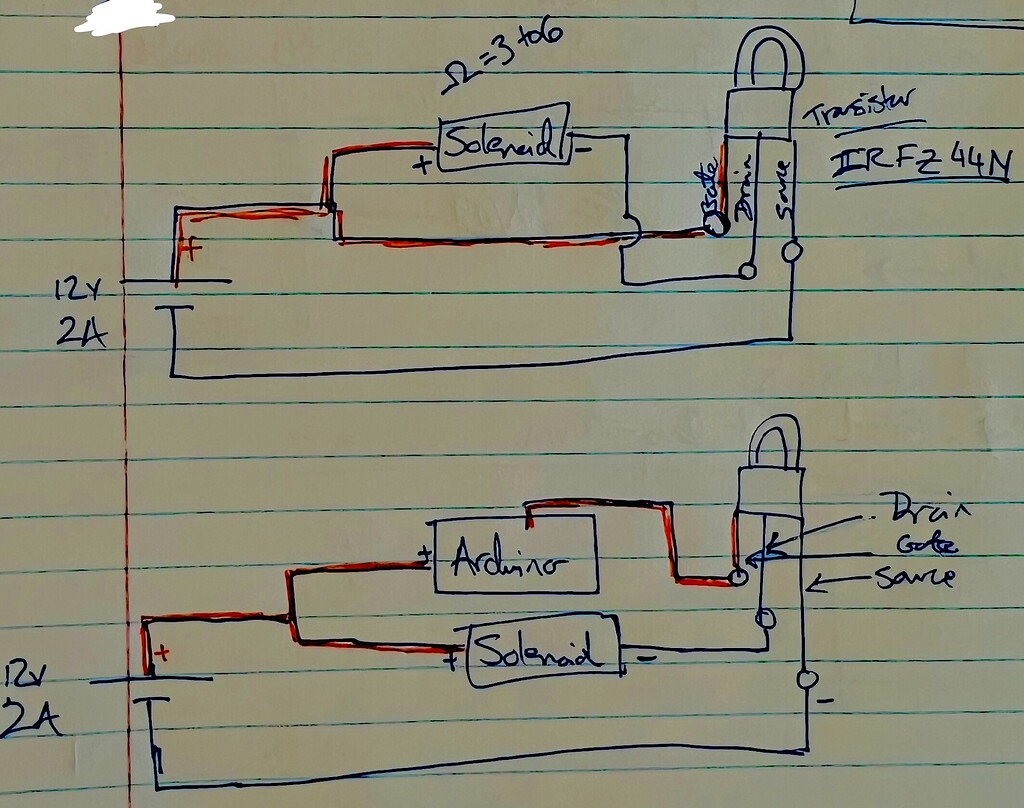 Ω=3 to 6
Transistor
IRFZ44N
+ Solenoid -
Gate
Drain
Source
+
12v
2A
Drain
Gate
Source
+ Arduino
+ Solenoid -
+
12v
2A
-